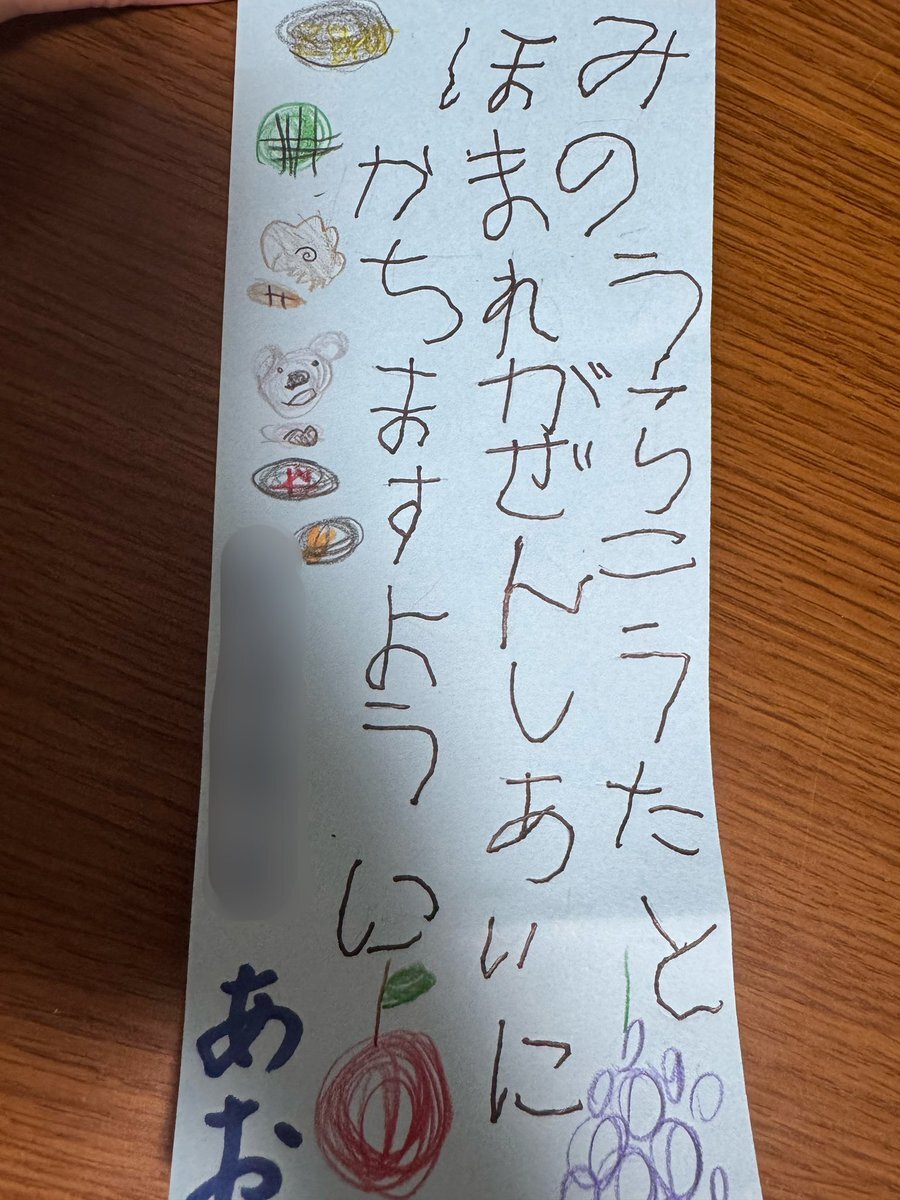 みのうらこうたと
ほまれがぜんしあいに
かちますように
あお